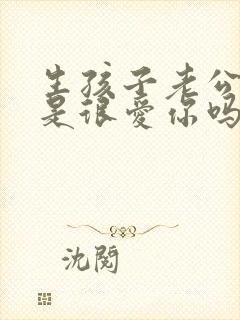 生孩子老公
是很爱你吗
沈阅